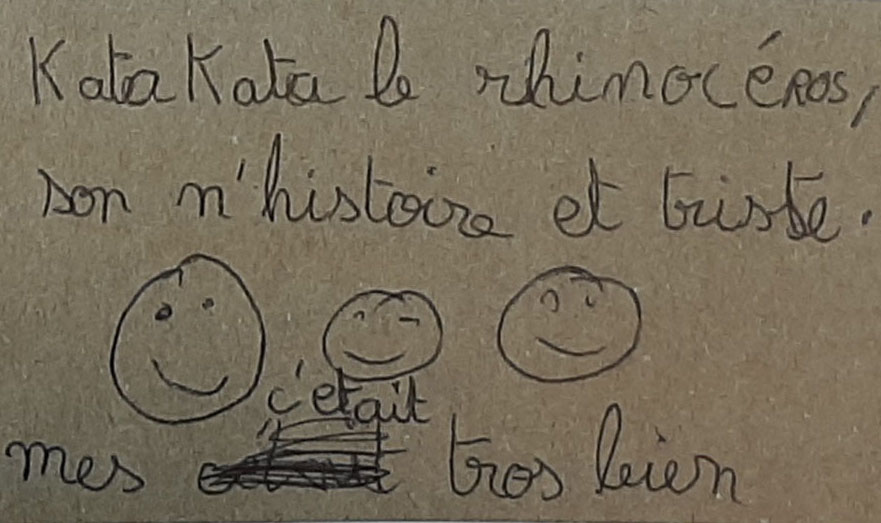 KataKata le rhinocéROS,
son n'histoire et triste.
c'était
mes tros bien